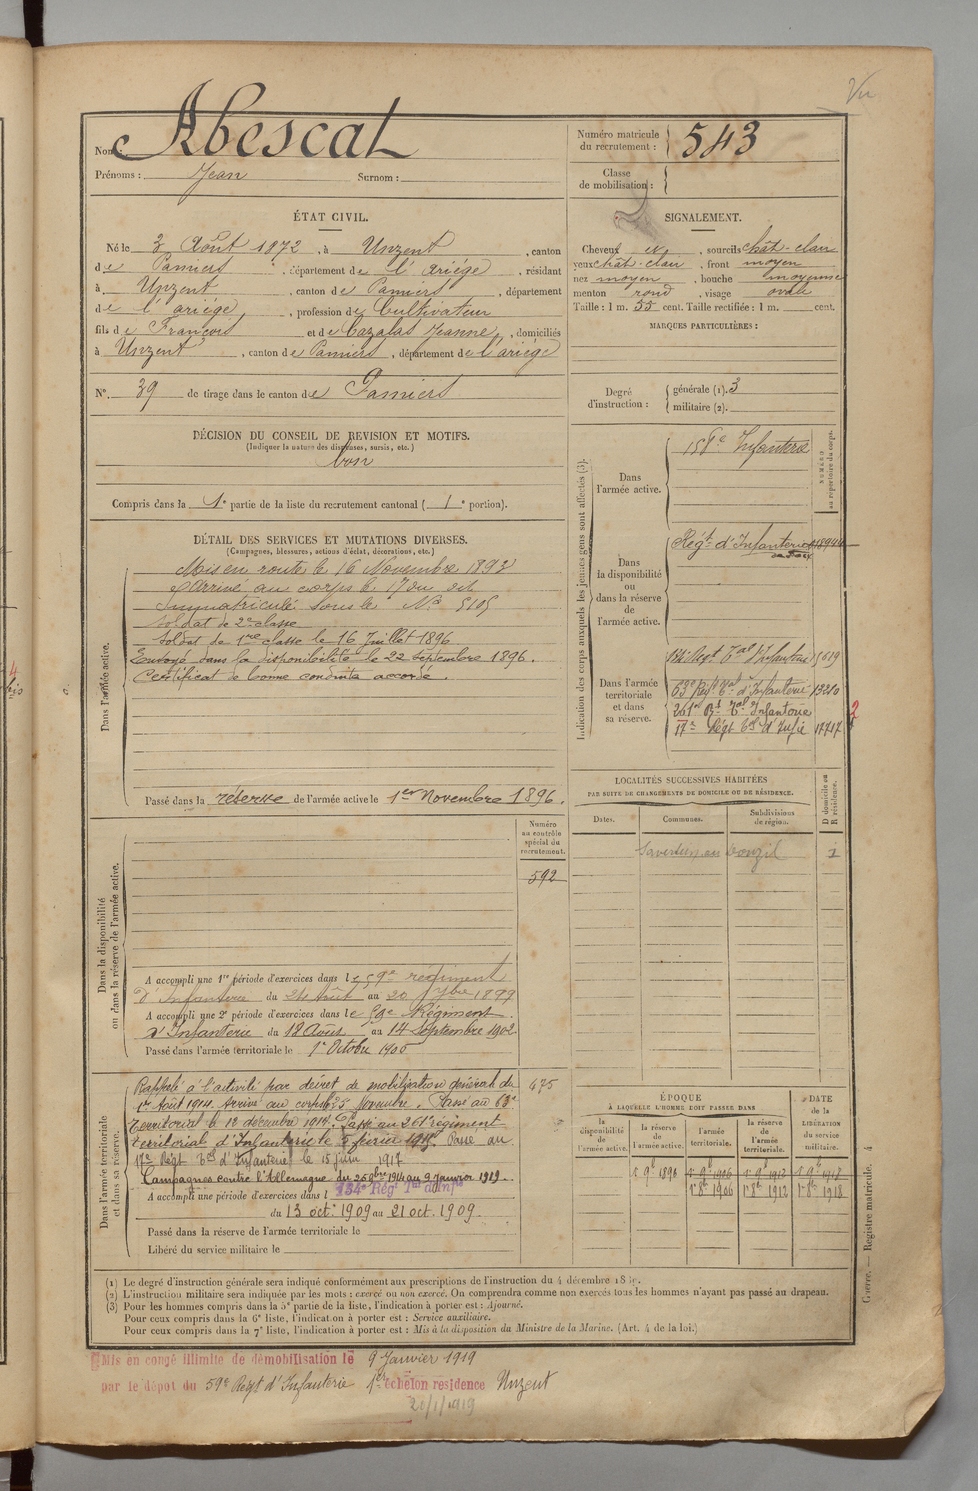 Vu
Nom : Abescat
Prénoms : Jean Surnom :
Numéro matricule du recrutement : 543
Classe de mobilisation :
ÉTAT CIVIL.
Né le 3 Août 1872, à Unzent, canton
de Pamiers, département de l'ariége, résidant
à Unzent, canton de Pamiers, département
de l'ariége, profession de Cultivateur
fils de François et de Cazalas Jeanne, domiciliés
à Unzent, canton de Pamiers, département de l'ariége
N°. 39 de tirage dans le canton de Pamiers
SIGNALEMENT.
Cheveux, sourcils chât-clair
yeux chât-clair, front moyen
nez moyen, bouche moyenne
menton rond, visage ovale
Taille : 1 m. 55 cent. Taille rectifiée : 1 m. cent.
MARQUES PARTICULIÈRES :
Degré d'instruction : générale (1). 3
militaire (2).
DÉCISION DU CONSEIL DE REVISION ET MOTIFS.
(Indiquer la nature des dispenses, sursis, etc.)
bon
Compris dans la 1e partie de la liste du recrutement cantonal ( 1e portion).
DÉTAIL DES SERVICES ET MUTATIONS DIVERSES.
(Campagnes, blessures, actions d'éclat, décorations, etc.)
Dans l'armée active.
Mis en route le 16 Novembre 1893
Arrivé au corps le 17 du dit
Immatriculé sous le N° 5105
Soldat de 2e classe
Soldat de 1re classe le 16 Juillet 1896
Envoyé dans la disponibilité le 22 septembre 1896.
Certificat de bonne conduite accordé.
Passé dans la réserve de l'armée active le 1er Novembre 1896.
Indication des corps auxquels les jeunes gens sont affectés (3).
NUMÉRO au répertoire du corps.
Dans l'armée active.
158e Infanterie
Dans la disponibilité ou dans la réserve de l'armée active.
Régt d'Infanterie
Dans l'armée territoriale et dans sa réserve.
134 Regt Tal d'Infanterie 15619
63e Regt Tal d'Infanterie 13210
261e Rt Tal Infanterie
17e Régt Tal d'Infie 17717
2
LOCALITÉS SUCCESSIVES HABITÉES
PAR SUITE DE CHANGEMENTS DE DOMICILE OU DE RÉSIDENCE.
Dates. Communes. Subdivisions de région. D domicile ou R résidence.
Dans la disponibilité ou dans la réserve de l'armée active.
Numéro au contrôle spécial du recrutement.
592
A accompli une 1re période d'exercices dans le 59e regiment
d'Infanterie du 24 Août au 20 7bre 1899
A accompli une 2e période d'exercices dans le 59e Régiment
d'Infanterie du 18 Août au 14 Septembre 1902
Passé dans l'armée territoriale le 1er Octobre 1906
Dans l'armée territoriale et dans sa réserve.
475
Rappelé à l'activité par décret de mobilisation général du
1er Août 1914. Arrivé au corps le 25 Novembre. Passé au 63e
Territorial le 12 décembre 1914. Passé au 261e régiment
territorial d'Infanterie le 5 février 1915. Passé au
17e Régt Tal d'Infanterie le 15 juin 1917
Campagnes contre l'Allemagne du 25 9bre 1914 au 9 Janvier 1919.
A accompli une période d'exercices dans l 134e Régt Tal d'Infie
du 13 oct. 1909 au 21 oct. 1909.
Passé dans la réserve de l'armée territoriale le
Libéré du service militaire le
ÉPOQUE
À LAQUELLE L'HOMME DOIT PASSER DANS
DATE de la LIBÉRATION du service militaire.
la disponibilité de l'armée active. la réserve de l'armée active. l'armée territoriale. la réserve de l'armée territoriale.
1r 9e 1896 1r 9e 1906 1r 9e 1912 1r 9e 1918
1r 8e 1906 1r 8e 1912 1r 8e 1918
(1) Le degré d'instruction générale sera indiqué conformément aux prescriptions de l'instruction du 4 décembre 18
(2) L'instruction militaire sera indiquée par les mots : exercé ou non exercé. On comprendra comme non exercés tous les hommes n'ayant pas passé au drapeau.
(3) Pour les hommes compris dans la 5e partie de la liste, l'indication à porter est : Ajourné.
Pour ceux compris dans la 6e liste, l'indication à porter est : Service auxiliaire.
Pour ceux compris dans la 7e liste, l'indication à porter est : Mis à la disposition du Ministre de la Marine. (Art. 4 de la loi.)
Guerre. — Registre matricule. 4
Mis en congé illimité de démobilisation le 9 Janvier 1919
par le dépôt du 59e Régt d'Infanterie 1er échelon résidence Unzent
20/1/1919